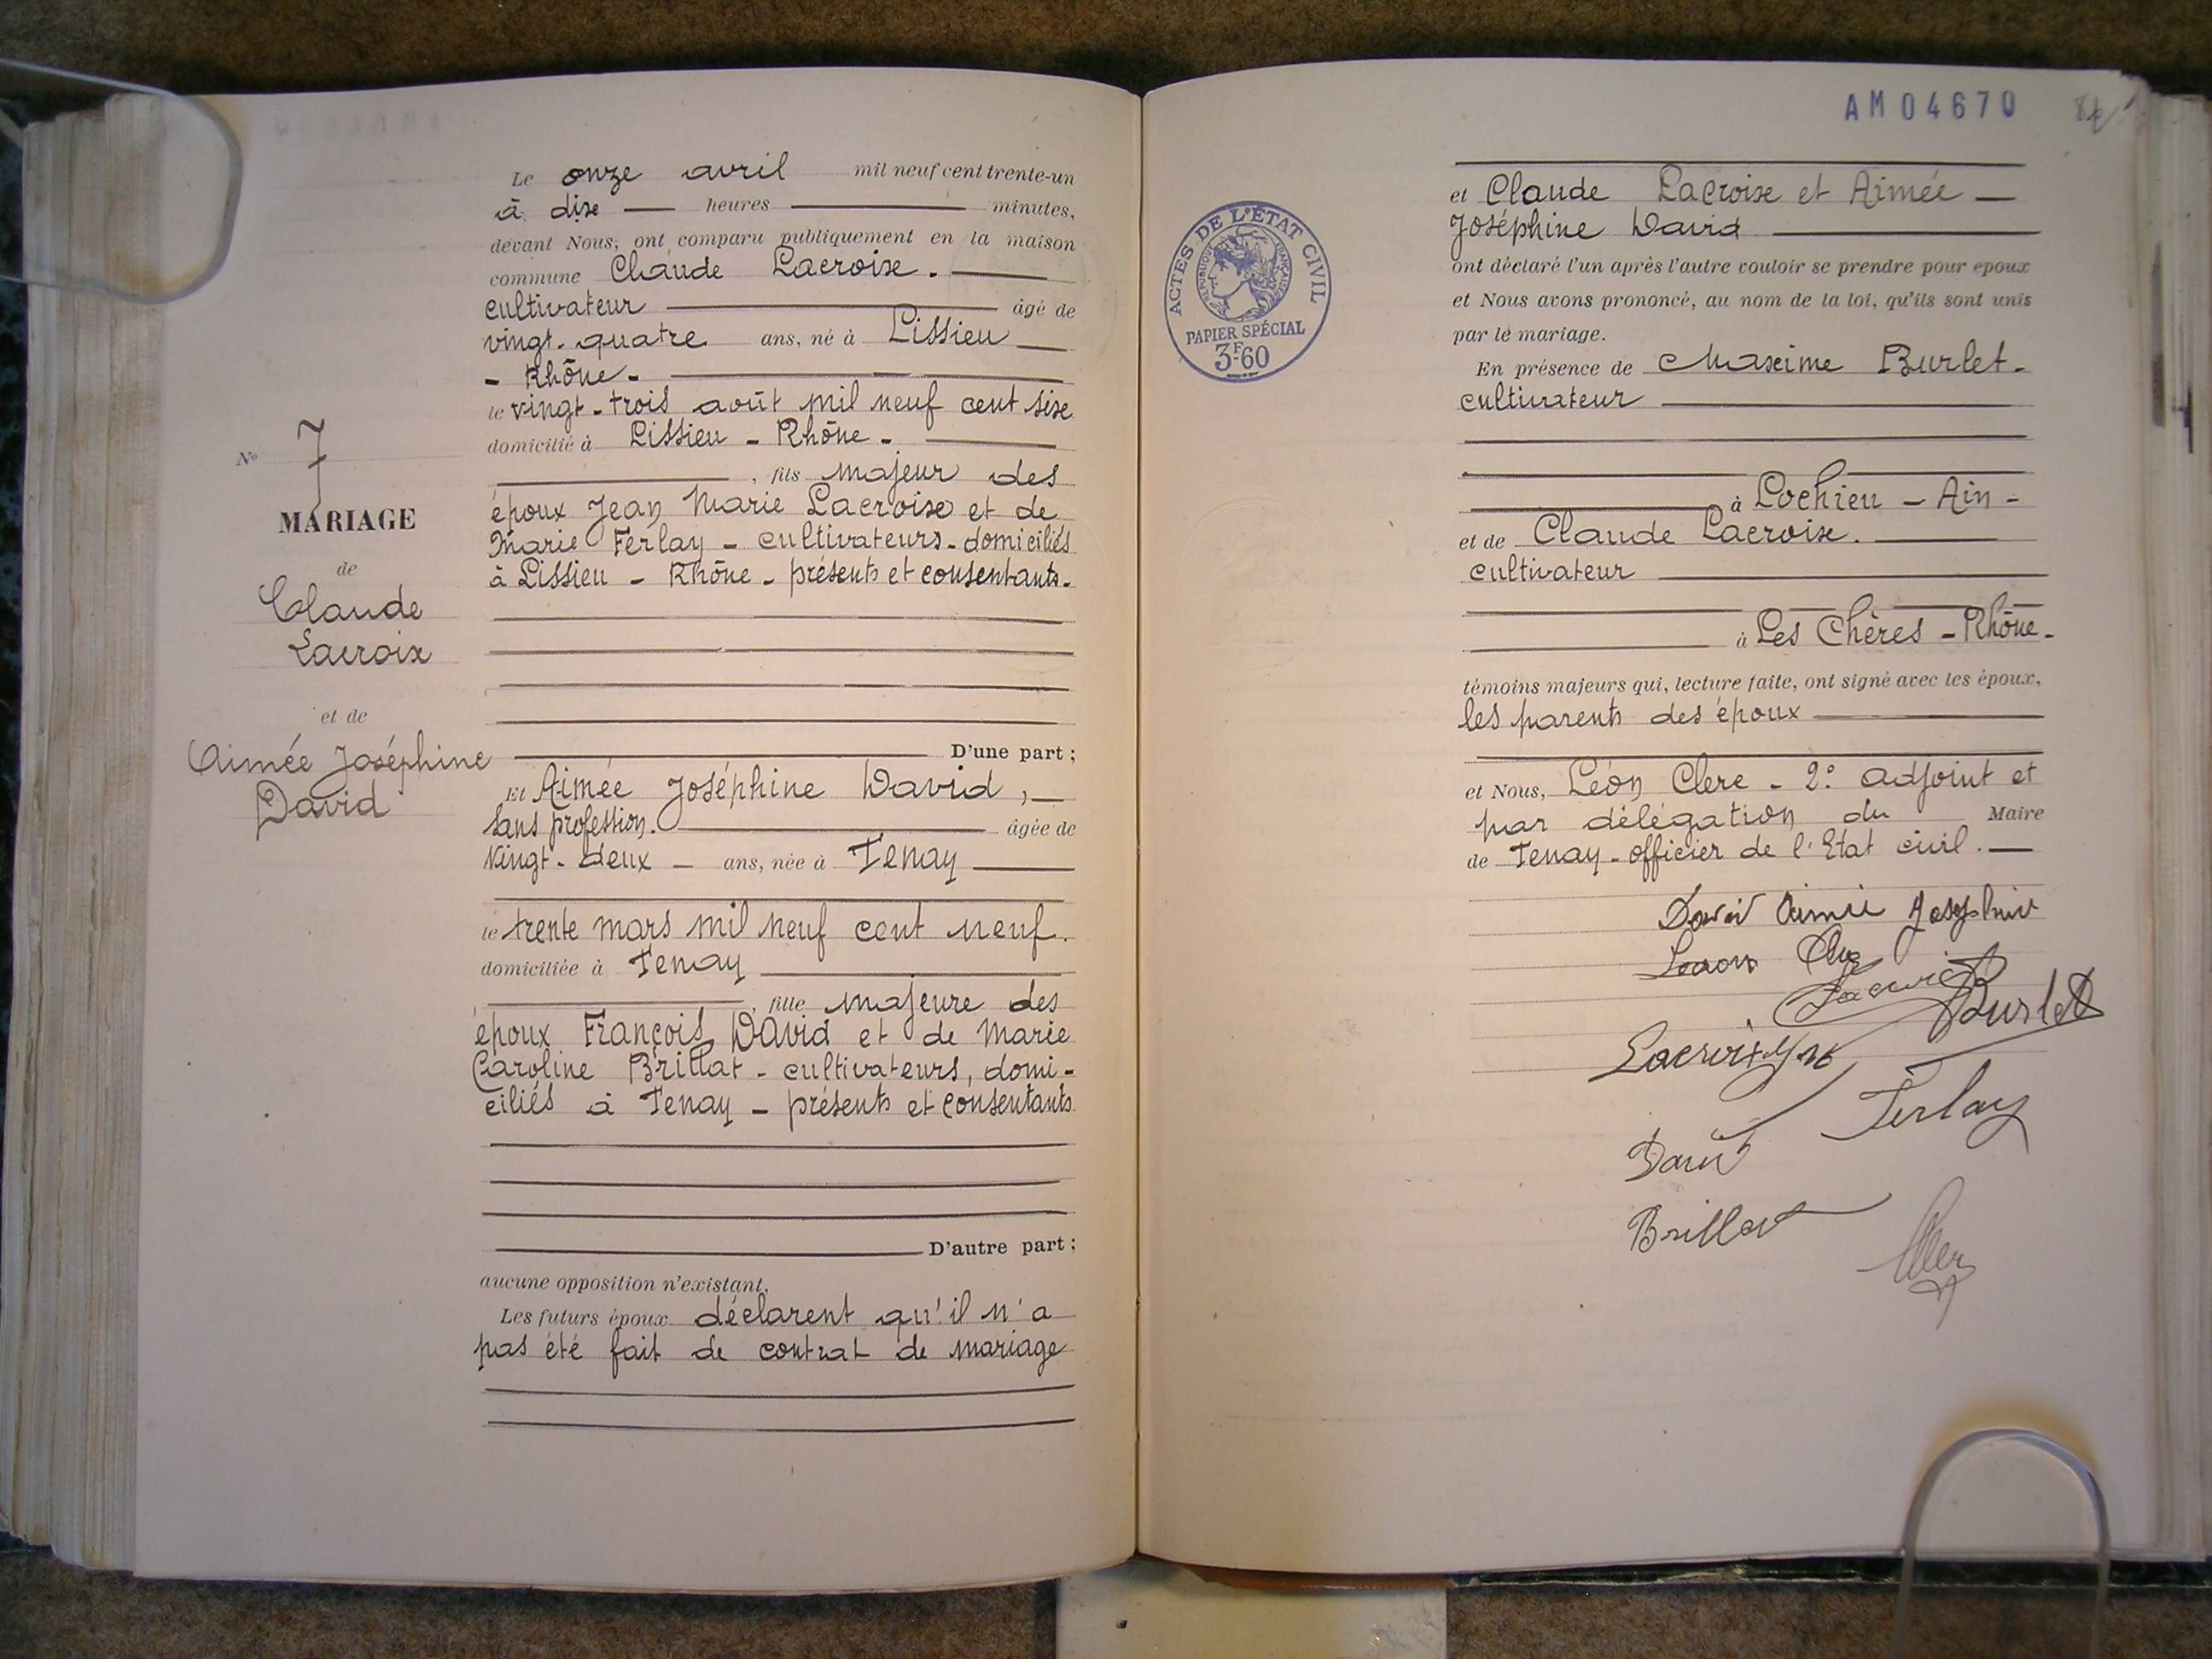 Le onze avril mil neuf cent trente-un
à dix heures minutes,
devant Nous, ont comparu publiquement en la maison
commune Claude Lacroix.
cultivateur âgé de
vingt-quatre ans, né à Lissieu
- Rhône -
le vingt-trois août mil neuf cent six
domicilié à Lissieu - Rhône -
, fils majeur des
époux Jean Marie Lacroix et de
Marie Ferlay - cultivateurs - domiciliés
à Lissieu - Rhône - présents et consentants.
D'une part ;
Et Aimée Joséphine David,
sans profession. âgée de
vingt-deux - ans, née à Tenay
le trente mars mil neuf cent neuf.
domiciliée à Tenay
, fille majeure des
époux François David et de Marie
Caroline Brillat - cultivateurs, domi-
ciliés à Tenay - présents et consentants
D'autre part ;
aucune opposition n'existant.
Les futurs époux déclarent qu'il n'a
pas été fait de contrat de mariage
N° 7
MARIAGE
de
Claude
Lacroix
et de
Aimée Joséphine
David
AM04670
ACTES DE L'ÉTAT CIVIL
RÉPUBLIQUE FRANÇAISE
PAPIER SPÉCIAL
3F60
et Claude Lacroix et Aimée
Joséphine David
ont déclaré l'un après l'autre vouloir se prendre pour époux
et Nous avons prononcé, au nom de la loi, qu'ils sont unis
par le mariage.
En présence de Maxime Burlet -
cultivateur
à Lochieu - Ain -
et de Claude Lacroix.
cultivateur
à Les Chères - Rhône -
témoins majeurs qui, lecture faite, ont signé avec les époux,
les parents des époux
et Nous, Léon Clerc - 2e adjoint et
par délégation du Maire
de Tenay - officier de l'Etat civil.
David Aimée Joséphine
Lacroix
Burlet
Lacroix
Ferlay
David
Brillat
Clerc